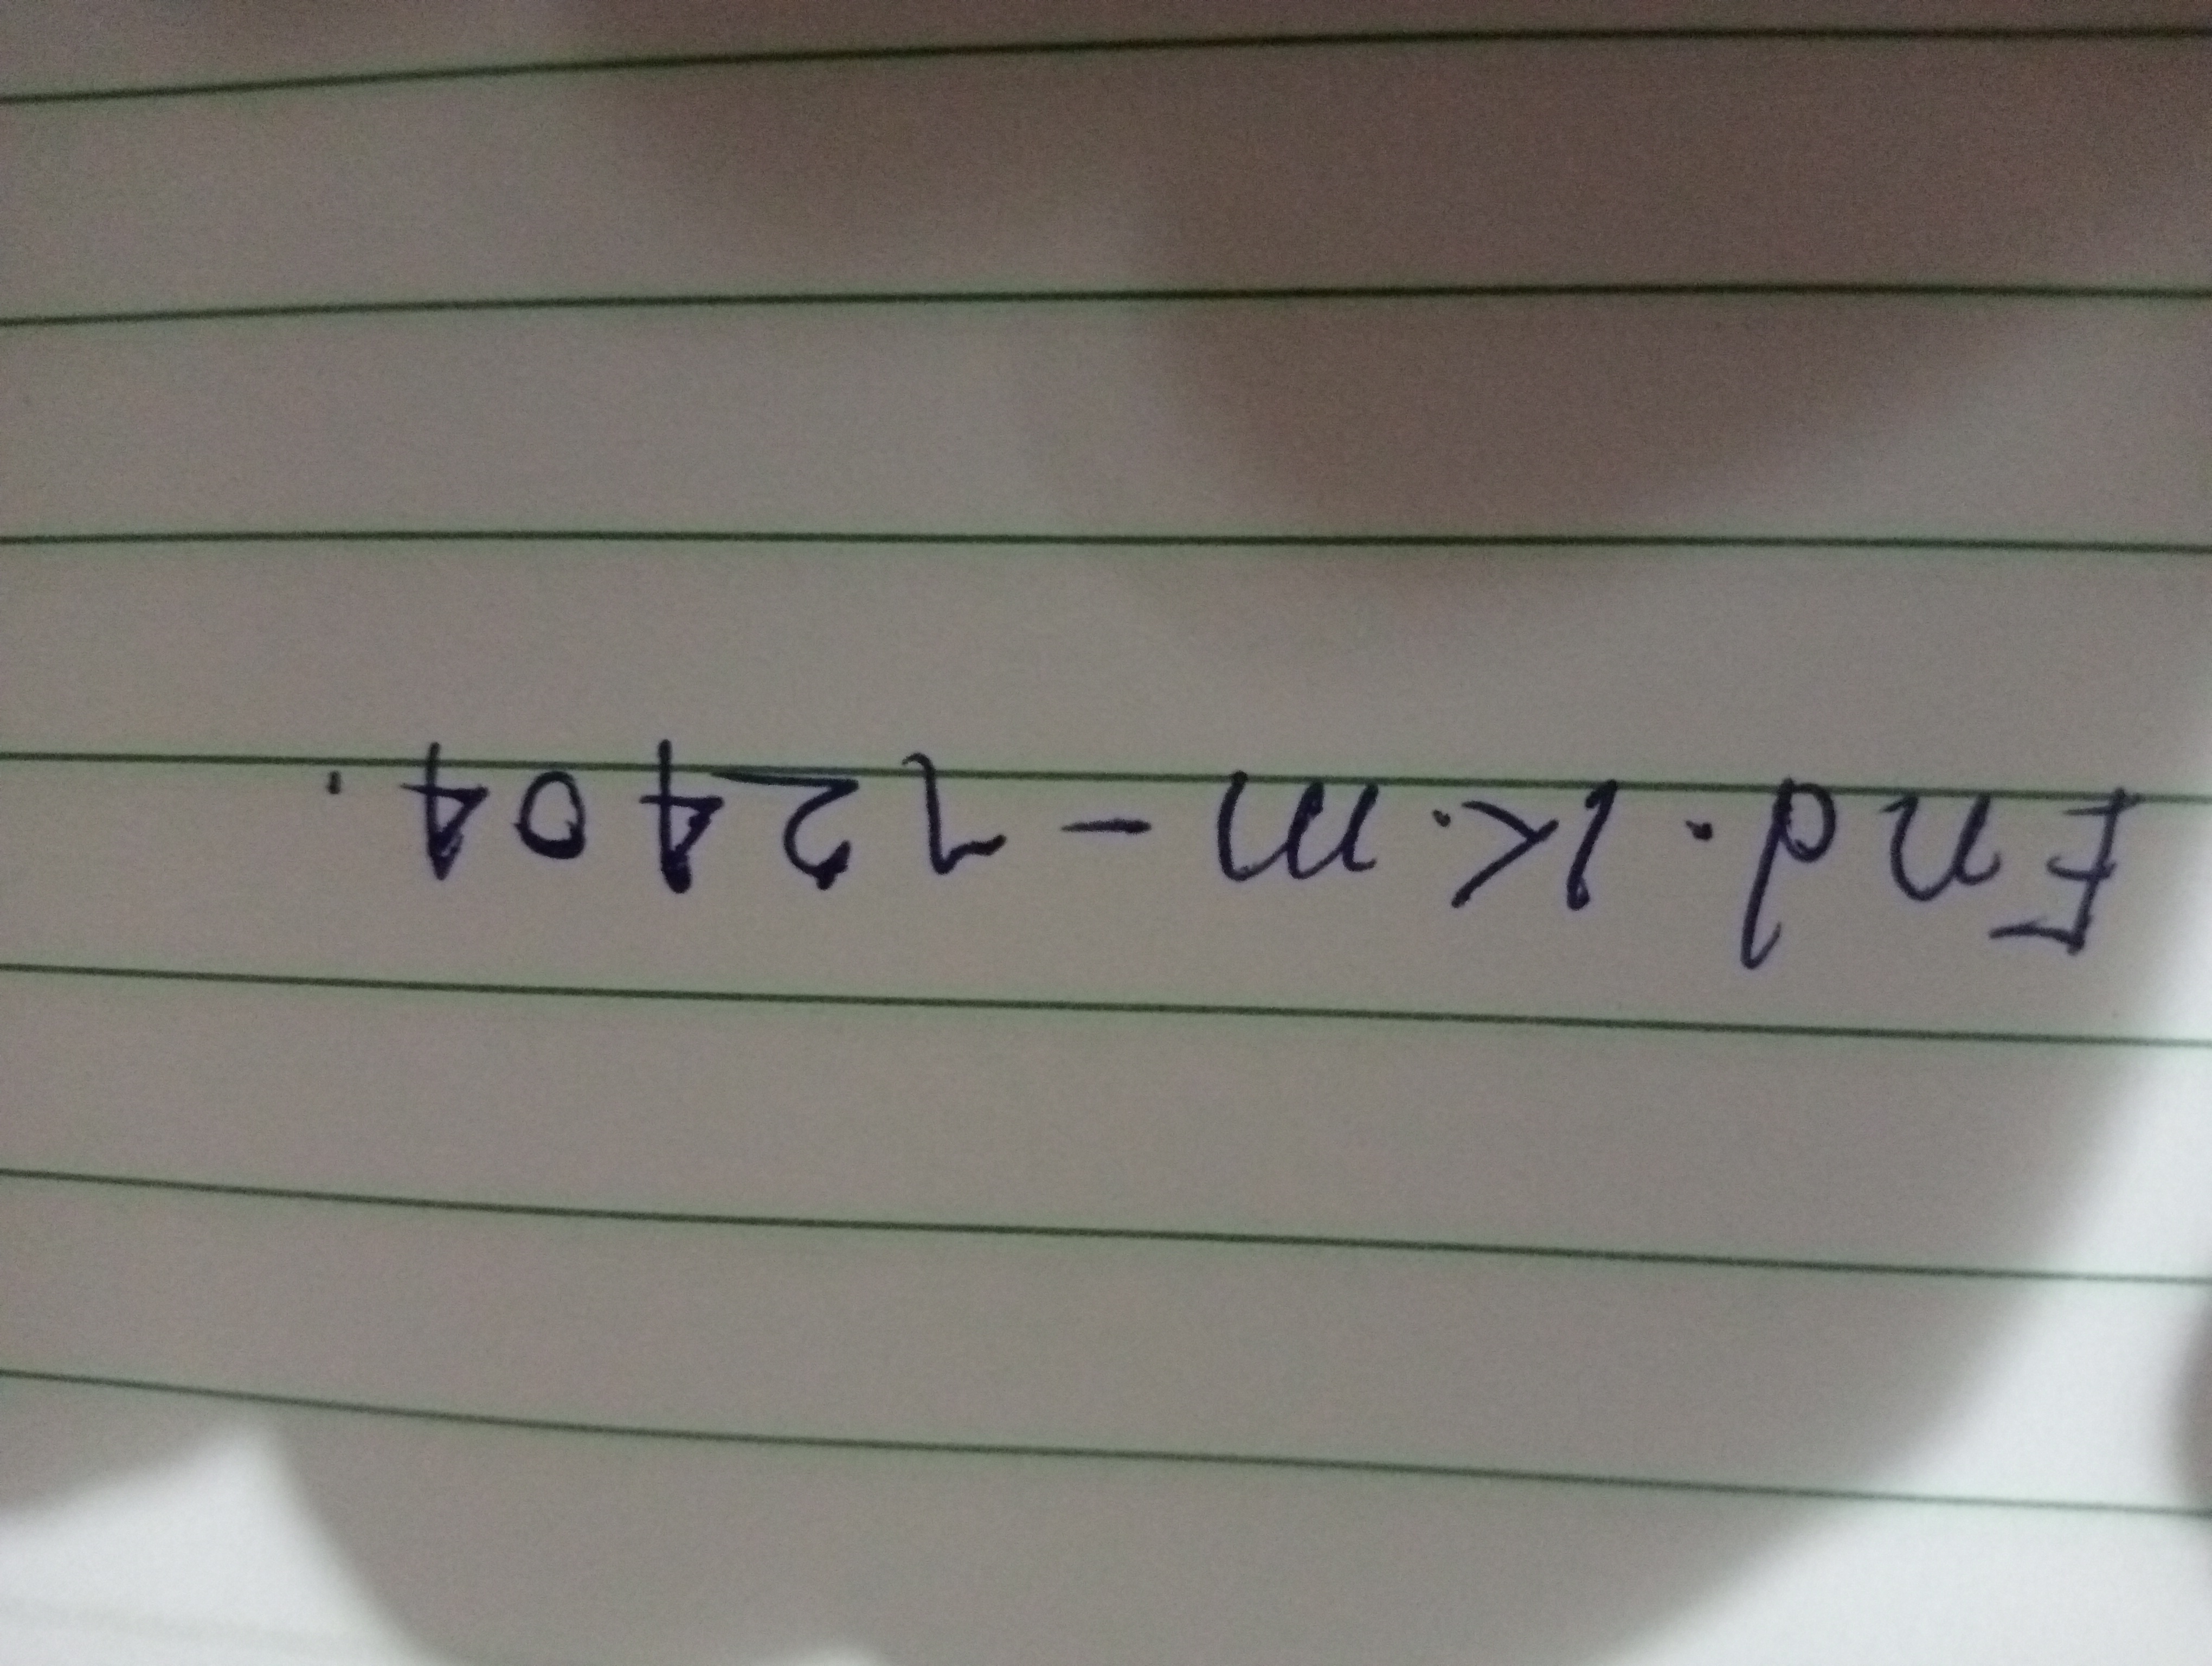 End. K. m - 12404.